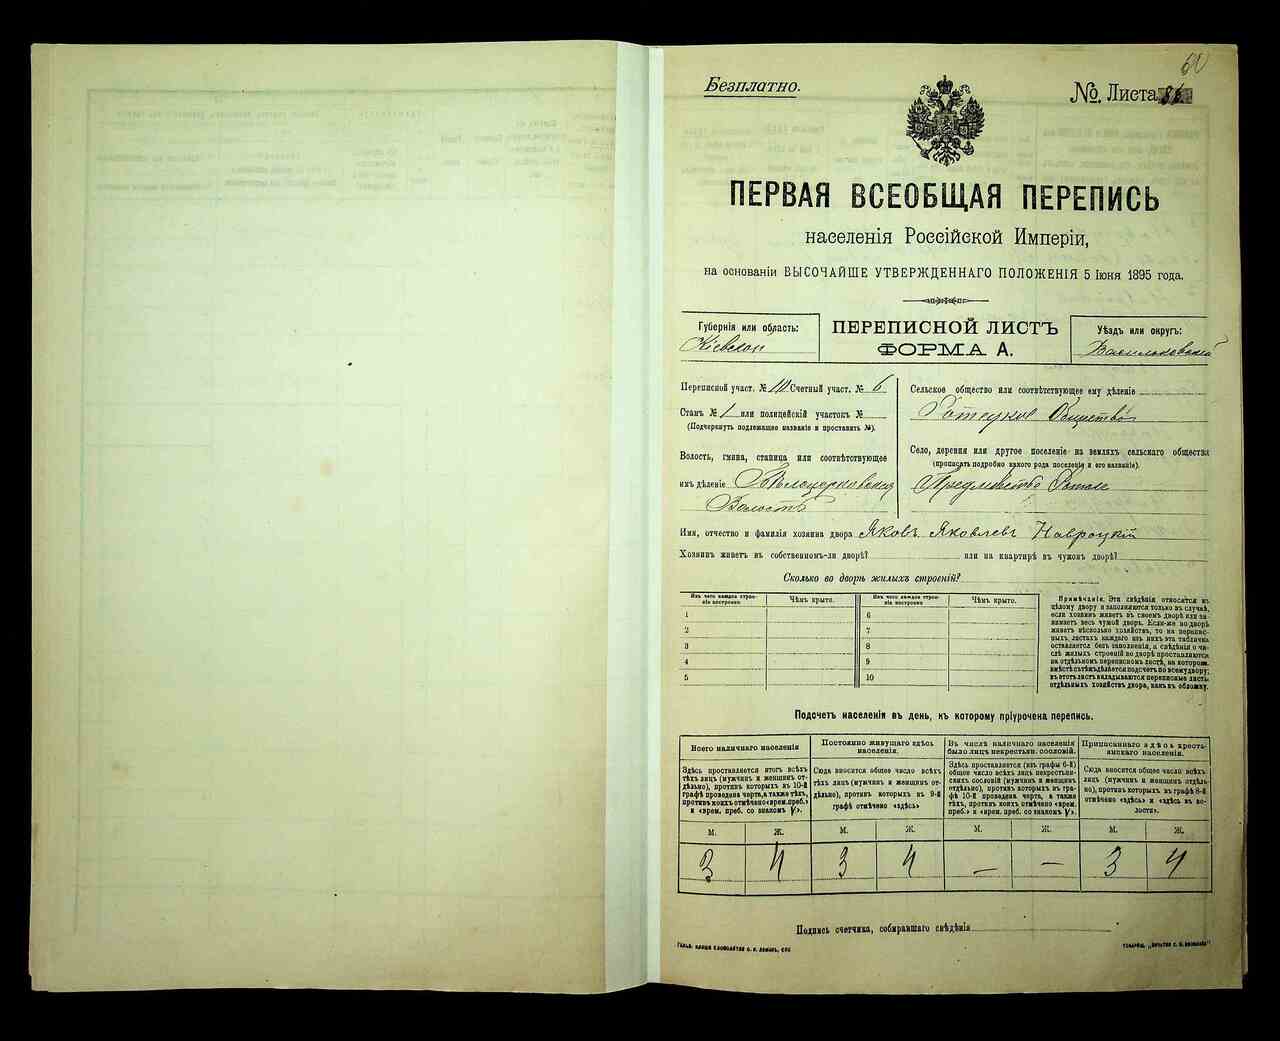 60
Безплатно.
№ Листа 86
ПЕРВАЯ ВСЕОБЩАЯ ПЕРЕПИСЬ
населенія Россійской Имперіи,
на основаніи ВЫСОЧАЙШЕ УТВЕРЖДЕННАГО ПОЛОЖЕНІЯ 5 Іюня 1895 года.
Губернія или область:
Кіевская
ПЕРЕПИСНОЙ ЛИСТЪ
ФОРМА А.
Уѣздъ или округъ:
Васильковскій
Переписной участ. № Счетный участ. № 6
Станъ № 1 или полицейскій участокъ №
(Подчеркнуть подлежащее названіе и проставить №).
Волость, гмина, станица или соотвѣтствующее
имъ дѣленіе Бѣлоцерковская
Волость
Сельское общество или соотвѣтствующее ему дѣленіе
Общество
Село, деревня или другое поселеніе на земляхъ сельскаго общества
(прописать подробно какого рода поселеніе и его названіе).
Предмѣстье
Имя, отчество и фамилія хозяина двора Яковъ Яковлевъ Навроцкій
Хозяинъ живетъ въ собственномъ-ли дворѣ? или на квартирѣ въ чужомъ дворѣ?
Сколько во дворѣ жилыхъ строеній?
Изъ чего каждое строе-
ніе построено
Чѣмъ крыто.
Изъ чего каждое строе-
ніе построено
Чѣмъ крыто.
1
2
3
4
5
6
7
8
9
10
Примѣчанія. Эти свѣдѣнія относятся къ
цѣлому двору и заполняются только въ случаѣ,
если хозяинъ живетъ въ своемъ дворѣ или за-
нимаетъ весь чужой дворъ. Если-же во дворѣ
живетъ нѣсколько хозяйствъ, то на перепис-
ныхъ листахъ каждаго изъ нихъ эта табличка
оставляется безъ заполненія, а свѣдѣнія о чи-
слѣ жилыхъ строеній во дворѣ проставляются
на отдѣльномъ переписномъ листѣ, на которомъ
вмѣстѣ съ тѣмъ дѣлается подсчетъ по всему двору;
въ этотъ листъ вкладываются переписные листы
отдѣльныхъ хозяйствъ двора, какъ въ обложку.
Подсчетъ населенія въ день, къ которому пріурочена перепись.
Всего наличнаго населенія
Здѣсь проставляется итогъ всѣхъ
тѣхъ лицъ (мужчинъ и женщинъ от-
дѣльно), противъ которыхъ въ 10-й
графѣ проведена черта, а также тѣхъ,
противъ коихъ отмѣчено «врем. преб.»
и «врем. преб. со знакомъ V».
Постоянно живущаго здѣсь
населенія.
Сюда вносится общее число всѣхъ
тѣхъ лицъ (мужчинъ и женщинъ от-
дѣльно), противъ которыхъ въ 9-й
графѣ отмѣчено «здѣсь»
Въ числѣ наличнаго населенія
было лицъ некрестьян. сословій.
Здѣсь проставляется (изъ графы 6-й)
общее число всѣхъ лицъ некрестьян-
скихъ сословій (мужчинъ и женщинъ
отдѣльно), противъ которыхъ въ гра-
фѣ 10-й проведена черта, а также
тѣхъ, противъ коихъ отмѣчено «врем.
преб.» и «врем. преб. со знакомъ V».
Приписаннаго здѣсь кресть-
янскаго населенія.
Сюда вносится общее число всѣхъ
лицъ (мужчинъ и женщинъ отдѣль-
но), противъ которыхъ въ графѣ 8-й
отмѣчено «здѣсь» и «здѣсь въ во-
лости».
М. Ж. М. Ж. М. Ж. М. Ж.
3 4 3 4 — — 3 4
Подпись счетчика, собиравшаго свѣдѣнія